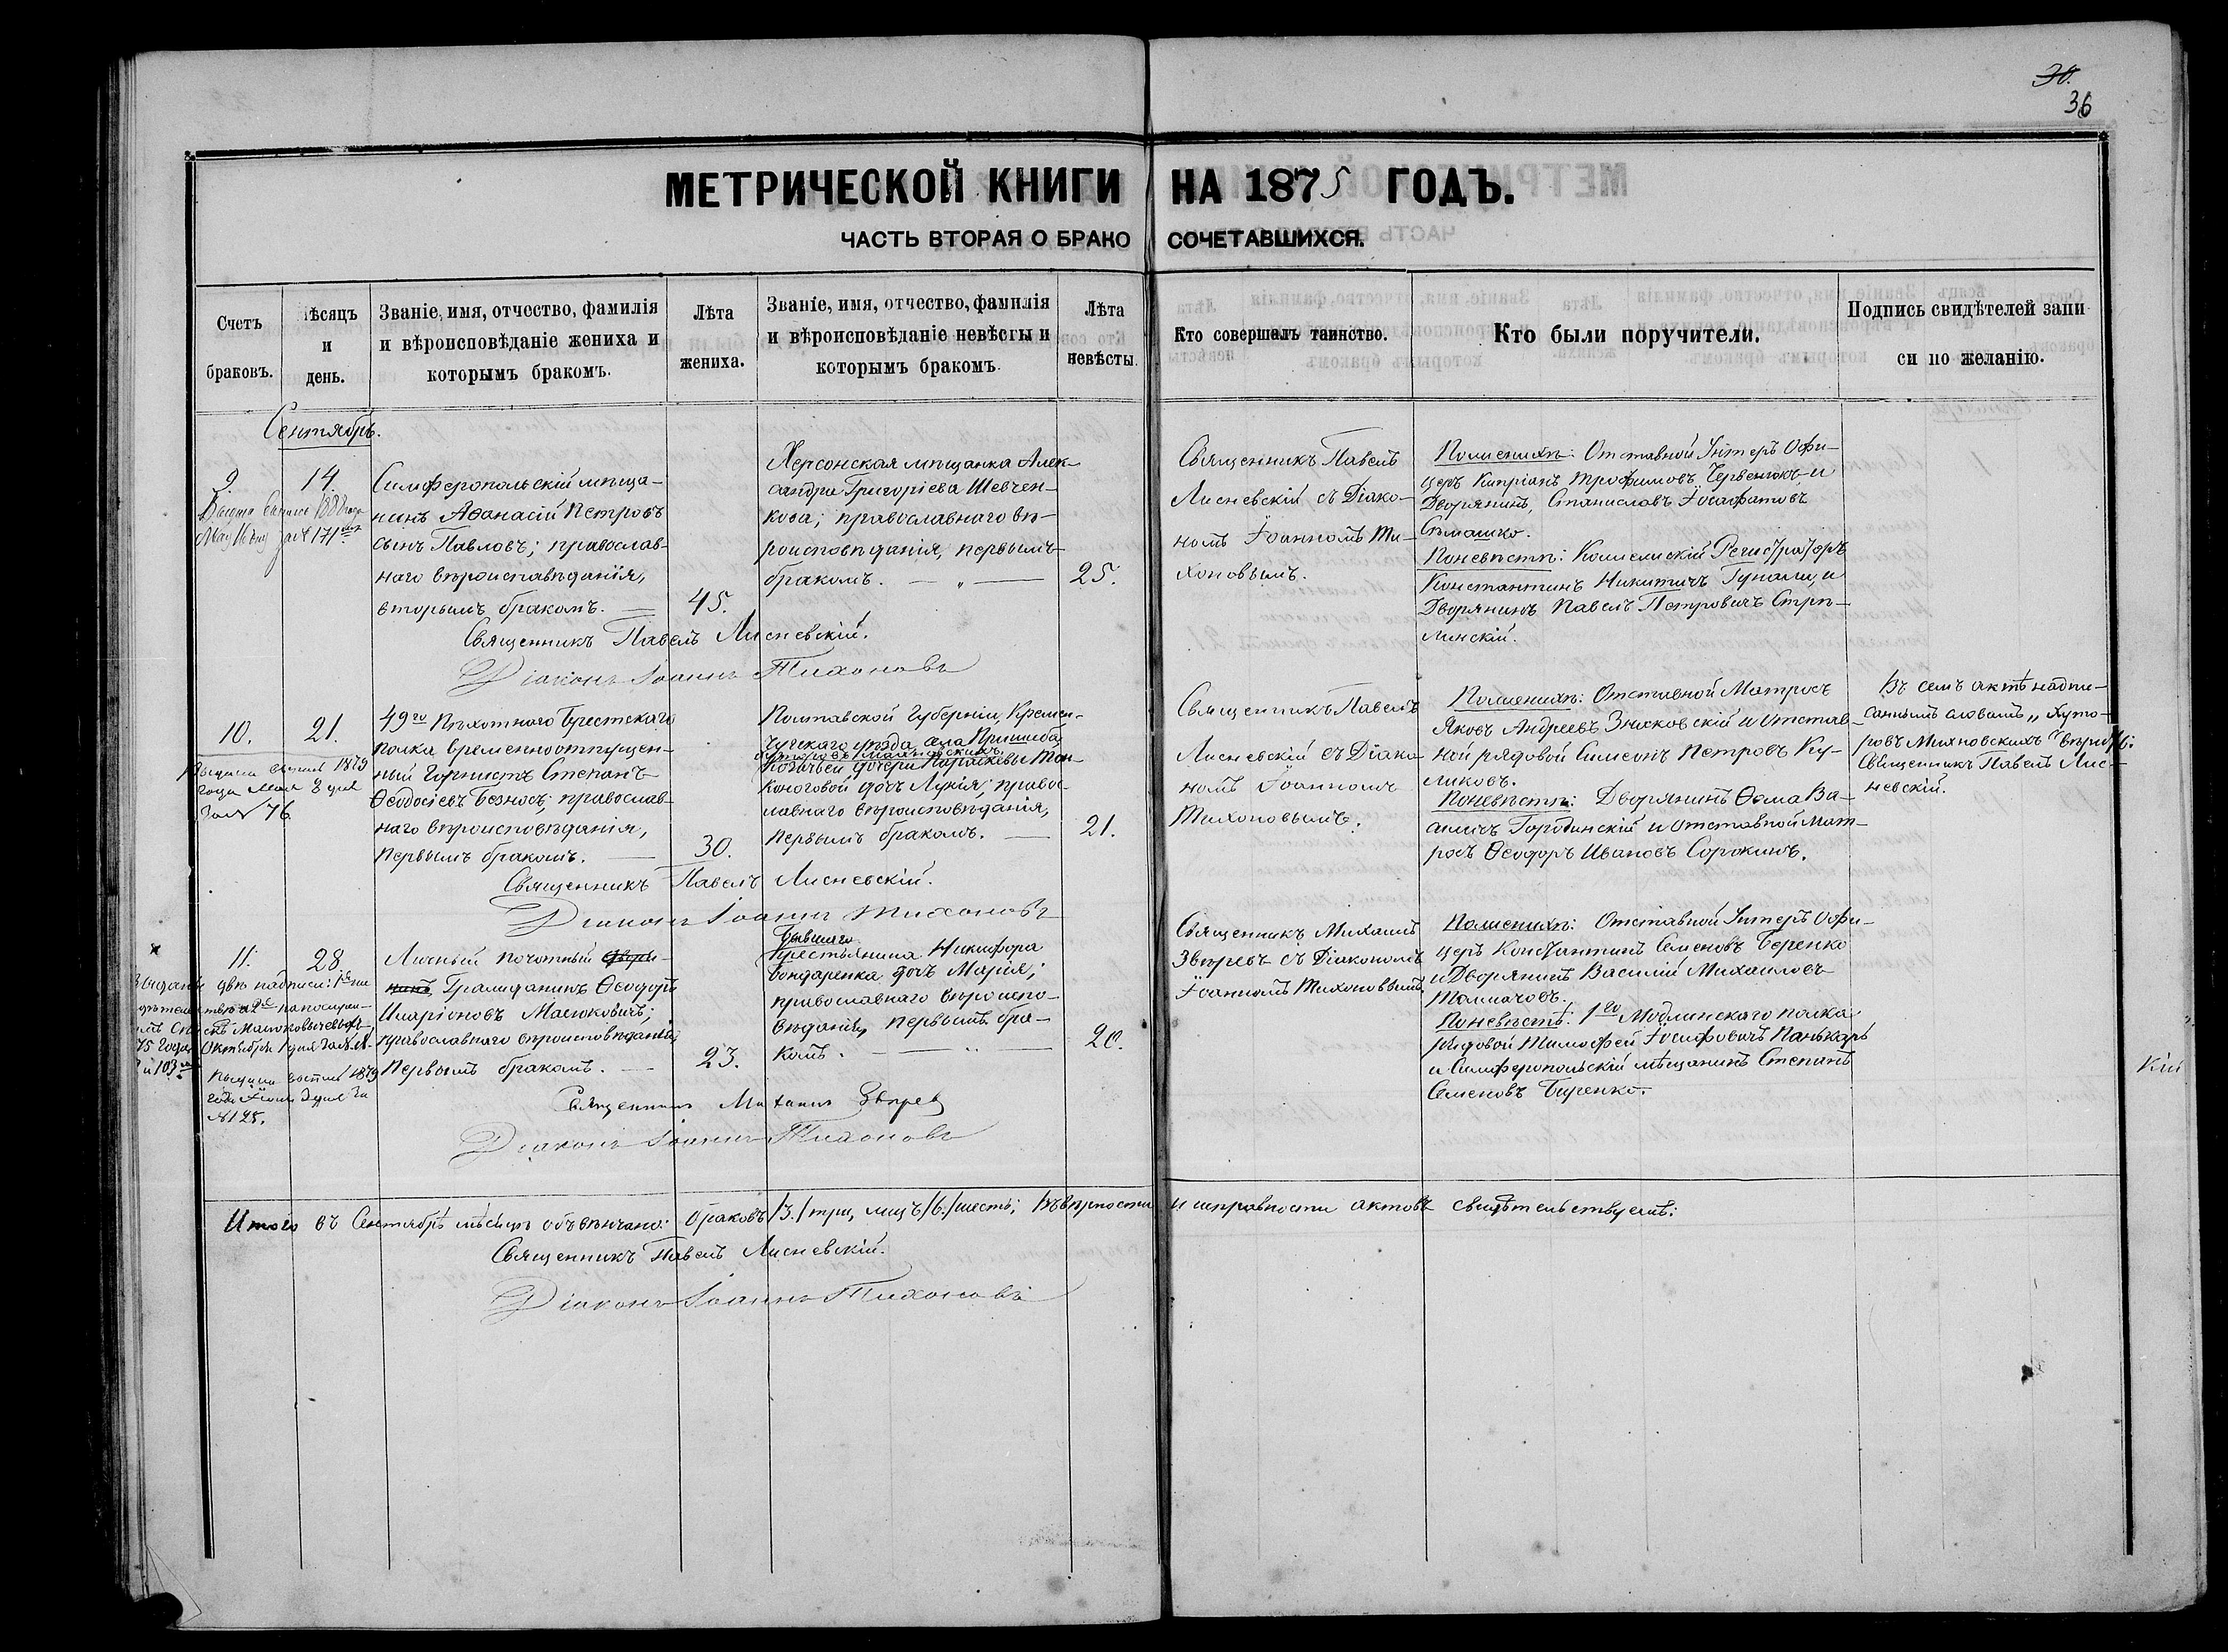 30.
36
МЕТРИЧЕСКОЙ КНИГИ НА 1875 ГОДЪ.
ЧАСТЬ ВТОРАЯ О БРАКОСОЧЕТАВШИХСЯ.
Счетъ
браковъ.
Мѣсяцъ
и
день.
Званіе, имя, отчество, фамилія
и вѣроисповѣданіе жениха и
которымъ бракомъ.
Лѣта
жениха.
Званіе, имя, отчество, фамилія
и вѣроисповѣданіе невѣсты и
которымъ бракомъ.
Лѣта
невѣсты.
Кто совершалъ таинство.
Кто были поручители.
Подпись свидѣтелей запи
си по желанію.
Сентябрь.
9.
14.
Симферопольскій мѣща-
нинъ Аѳанасій Петровъ
сынъ Павловъ; православ-
наго вѣроисповѣданія,
вторымъ бракомъ. —
45.
Херсонская мѣщанка Алек-
сандра Григоріева Шевчен-
кова; православнаго вѣ-
роисповѣданія, первымъ
бракомъ. — „ —
25.
Священникъ Павелъ
Лисневскій съ Діако-
номъ Іоанномъ Ти-
хоновымъ.
По женихѣ: Отставной Унтеръ Офи-
церъ Кипріанъ Трофимовъ Червенюкъ и
Дворянинъ, Станиславъ Іосафатовъ
Сѣмашко.
По невѣстѣ: Коллежскій Регистраторъ
Константинъ Никитичъ Гунали, и
Дворянинъ Павелъ Петровичъ Стрѣ-
линскій.
Священникъ Павелъ Лисневскій.
Діаконъ Іоаннъ Тихоновъ
10.
21.
49го Пѣхотнаго Брестскаго
полка временноотпущен-
ный Горнистъ Степанъ
Ѳеодосіевъ Безносъ; православ-
наго вѣроисповѣданія,
первымъ бракомъ. —
30.
Выдана выпись 1879
года Мая 8 дня
за № 76
Полтавской Губерніи, Кремен-
чугскаго уѣзда, села
хуторовъ Михновскихъ,
Козачьей дочери Параскевы Тон-
коноговой дочь Лукія; правос-
лавнаго вѣроисповѣданія,
первымъ бракомъ. —
21.
Священникъ Павелъ
Лисневскій съ Діако-
номъ Іоанномъ
Тихоновымъ.
По женихѣ: Отставной Матросъ
Яковъ Андреевъ Зниковскій и отстав-
ной рядовой Симеонъ Петровъ Ку-
ликовъ.
По невѣстѣ: Дворянинъ Ѳома Ва-
силичъ Городинскій и отставной Мат-
росъ Ѳеодоръ Ивановъ Сорокинъ.
Въ семъ актѣ надпи-
саннымъ словамъ „Хуто-
ровъ Михновскихъ" вѣрить:
Священникъ Павелъ Лис-
невскій.
Священникъ Павелъ Лисневскій.
Діаконъ Іоаннъ Тихоновъ
11.
28
Личный почотный дворя-
нинъ Гражданинъ Ѳеодоръ
Иларіоновъ Масюковичъ;
православнаго вѣроисповѣданія,
первымъ бракомъ. —
23.
Выдана выпись 1879
года Іюля 3 дня за
№ 125.
Бывшаго
Крестьянина Никифора
Бондаренка дочь Марія;
православнаго вѣроиспо-
вѣданія, первымъ бра-
комъ. —
20.
Священникъ Михаилъ
Звѣревъ съ Діакономъ
Іоанномъ Тихоновымъ.
По женихѣ: Отставной Унтеръ Офи-
церъ Константинъ Семеновъ Беренко
и Дворянинъ Василій Михаиловъ
Толмачовъ.
По невѣстѣ: 1го Модлинскаго полка
рядовой Тимофей Іосифовичъ Панькаръ
и Симферопольскій мѣщанинъ Степанъ
Семеновъ Буренко.
Священникъ Михаилъ Звѣревъ
Діаконъ Іоаннъ Тихоновъ
Итого въ Сентябрѣ мѣсяцѣ обвѣнчано: браковъ /3./ три, лицъ /6./ шесть; Въ вѣрности и исправности актовъ свидѣтельствуемъ:
Священникъ Павелъ Лисневскій.
Діаконъ Іоаннъ Тихоновъ